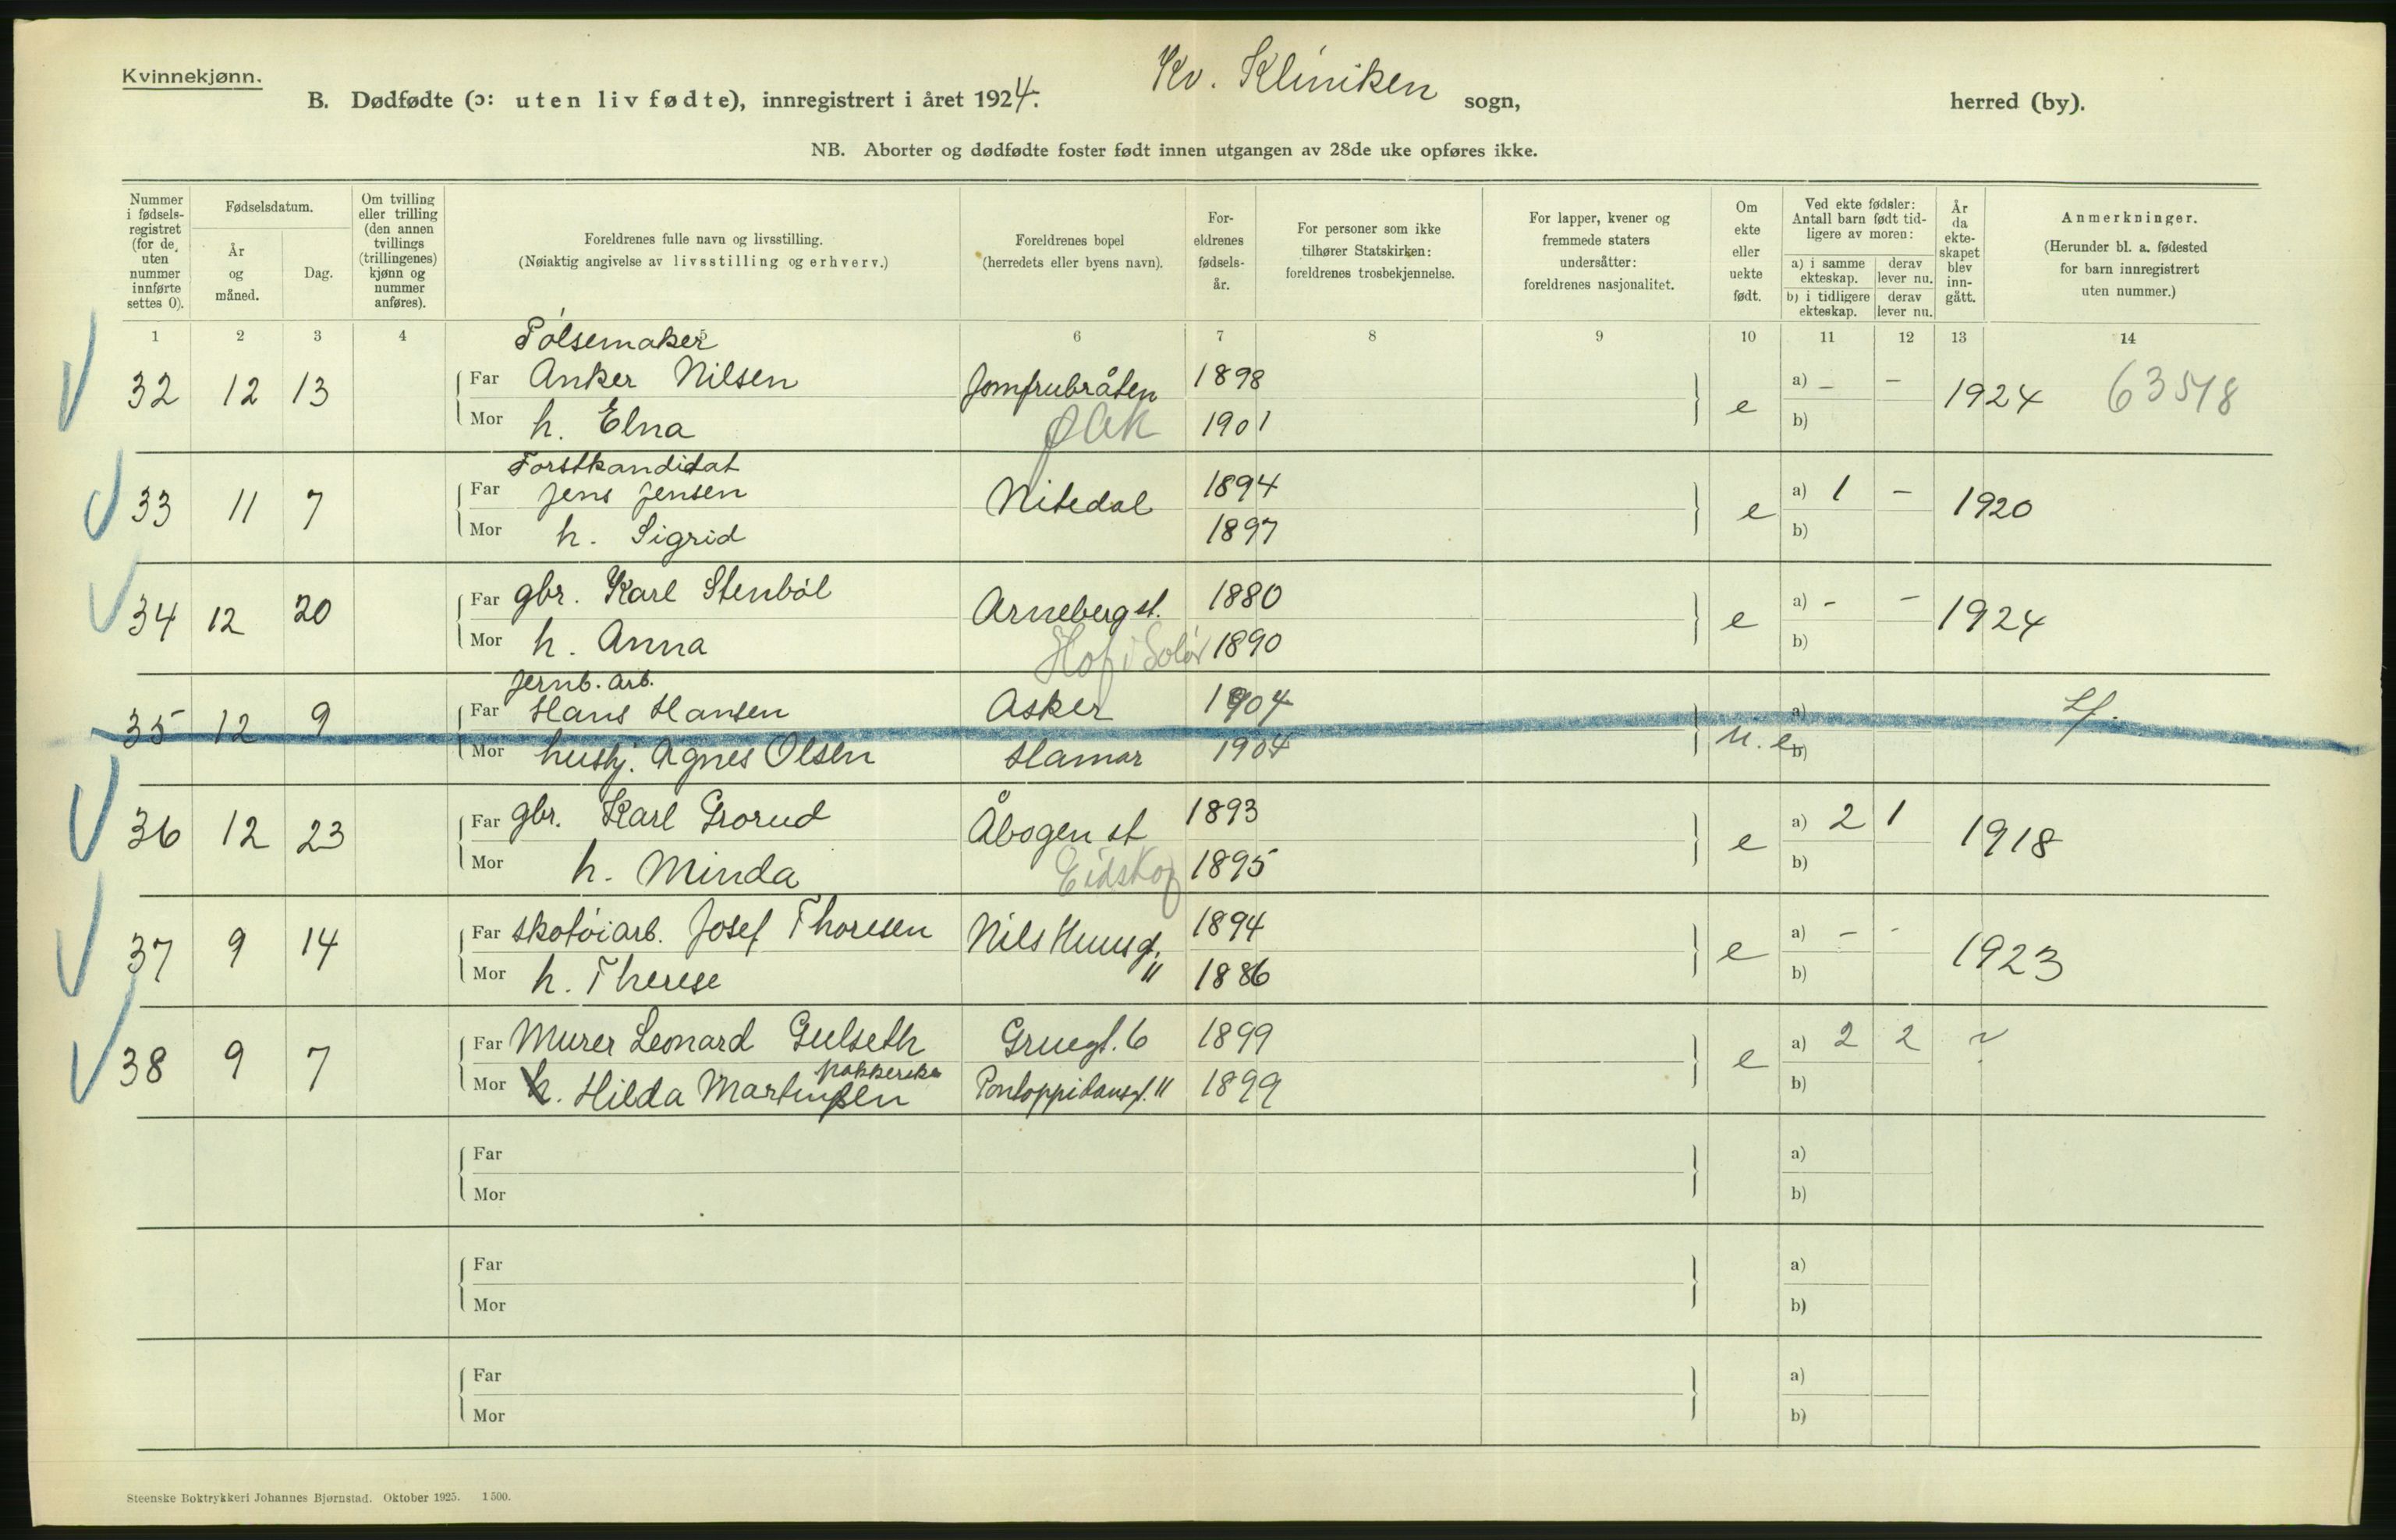 Kvinnekjønn.
B. Dødfødte (ɔ: uten liv fødte), innregistrert i året 1924. Kv. Kliniken sogn, herred (by).
NB. Aborter og dødfødte foster født innen utgangen av 28de uke opføres ikke.
Nummer i fødsels-registret (for de uten nummer innførte settes 0).
Fødselsdatum.
År og måned.
Dag.
Om tvilling eller trilling (den annen tvillings (trillingenes) kjønn og nummer anføres).
Foreldrenes fulle navn og livsstilling.
(Nøiaktig angivelse av livsstilling og erhverv.)
Foreldrenes bopel
(herredets eller byens navn).
For-eldrenes fødsels-år.
For personer som ikke tilhører Statskirken: foreldrenes trosbekjennelse.
For lapper, kvener og fremmede staters undersåtter: foreldrenes nasjonalitet.
Om ekte eller uekte født.
Ved ekte fødsler: Antall barn født tid-ligere av moren:
a) i samme ekteskap.
derav lever nu.
b) i tidligere ekteskap.
derav lever nu.
År da ekte-skapet blev inn-gått.
Anmerkninger.
(Herunder bl. a. fødested for barn innregistrert uten nummer.)
1 2 3 4 5 6 7 8 9 10 11 12 13 14
Pølsemaker
32 12 13 Far Anker Nilsen Jomfrubråten 1898 e a) – – 1924 63548
Mor h. Elna Ø Ak 1901 b)
Forstkandidat
33 11 7 Far Jens Jensen Nitedal 1894 e a) 1 – 1920
Mor h. Sigrid 1897 b)
34 12 20 Far gbr. Karl Stenbøl Arneberg st. 1880 e a) - – 1924
Mor h. Anna Hof i Solør 1890 b)
Jernb. arb.
35 12 9 Far Hans Hansen Asker 1904 u. e. a) Lf.
Mor hushj. Agnes Olsen Hamar 1904 b)
36 12 23 Far gbr. Karl Grorud Åbogen st 1893 e a) 2 1 1918
Mor h. Minda Eidskog 1895 b)
37 9 14 Far skotøiarb. Josef Thoresen Nils Huusg. 1894 e a) – - 1923
Mor h. Therese " 1886 b)
38 9 7 Far Murer Leonard Gulseth Gruegt. 6 1899 e a) 2 2 ?
pakkerske
Mor h. Hilda Martinsen Pontoppidansgt. 11 1899 b)
Far a)
Mor b)
Far a)
Mor b)
Far a)
Mor b)
Steenske Boktrykkeri Johannes Bjørnstad. Oktober 1925. 1500.